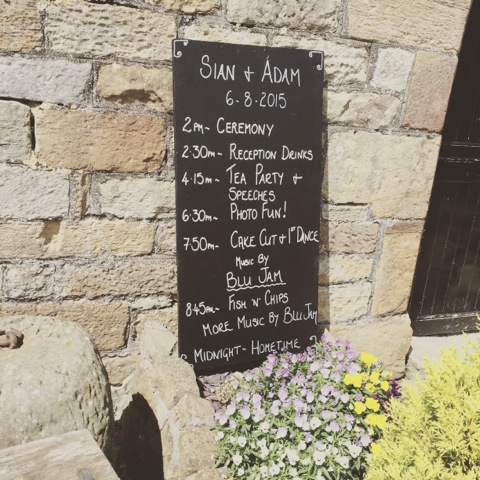 SIAN + ADAM
6-8-2015
2PM~ CEREMONY
2:30PM~ RECEPTION DRINKS
4:15PM~ TEA PARTY +
SPEECHES
6:30PM~ PHOTO FUN!
7:50PM~ CAKE CUT + 1ST DANCE
MUSIC BY
BLU JAM
8:45PM~ FISH 'N' CHIPS
MORE MUSIC BY BLU JAM
MIDNIGHT~ HOMETIME